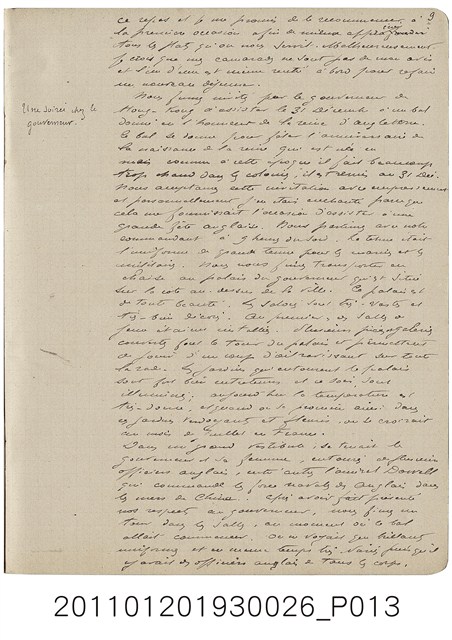 9
ce repas et je me promis de le recommencer à
la première occasion afin de mieux apprécier
tous les plats qu'on nous servit. Malheureusement
je crois que mes camarades ne sont pas de mon avis
et l'un d'eux est même rentré à bord pour refaire
un nouveau déjeuner.
Une soirée chez le
gouverneur.
Nous fûmes invités par le gouverneur de
Hong-Kong d'assister le 31 décembre à un bal
donné en l'honneur de la reine d'Angleterre.
Ce bal se donne pour fêter l'anniversaire de
la naissance de la reine qui est née en
mais comme à cette époque il fait beaucoup
trop chaud dans la colonie, il est remis au 31 Déc.
Nous acceptâmes cette invitation avec empressement
et personnellement j'en étais enchanté parce que
cela me fournissait l'occasion d'assister à une
grande fête anglaise. Nous partîmes avec notre
commandant à 9 heures du soir. La tenue était
l'uniforme de grande tenue pour les marins et les
militaires. Nous nous fîmes transporter en
chaise au palais du gouverneur qui est situé
sur la côte au-dessus de la ville. Ce palais est
de toute beauté. Les salons sont très vastes et
très bien décorés. Au premier, des salles de
jeux étaient installées. Plusieurs galeries
couvertes font le tour du palais et permettent
de jouir d'un coup d'œil ravissant sur toute
la rade. Les jardins qui entourent le palais
sont fort bien entretenus et ce soir, sont
illuminés; aujourd'hui la température est
très douce, et quand on se promène ainsi dans
ces jardins verdoyants et fleuris, on se croirait
au mois de Juillet en France.
Dans un grand vestibule se tenait le
gouverneur et sa femme, entourés de plusieurs
officiers anglais, entre autres l'amiral
qui commande les forces navales des Anglais dans
les mers de Chine. Après avoir présenté
nos respects au gouverneur, nous fîmes un
tour dans les salles, au moment où le bal
allait commencer. On ne voyait que brillants
uniformes et en même temps très variés, puisqu'il
y avait des officiers anglais de tous les corps.
201101201930026_P013